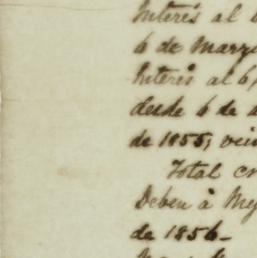 Interés al 6
6 de Marzo
Interés al 6
desde 6 de
de 1855, vei
Total cr
Deben à My
de 1856-